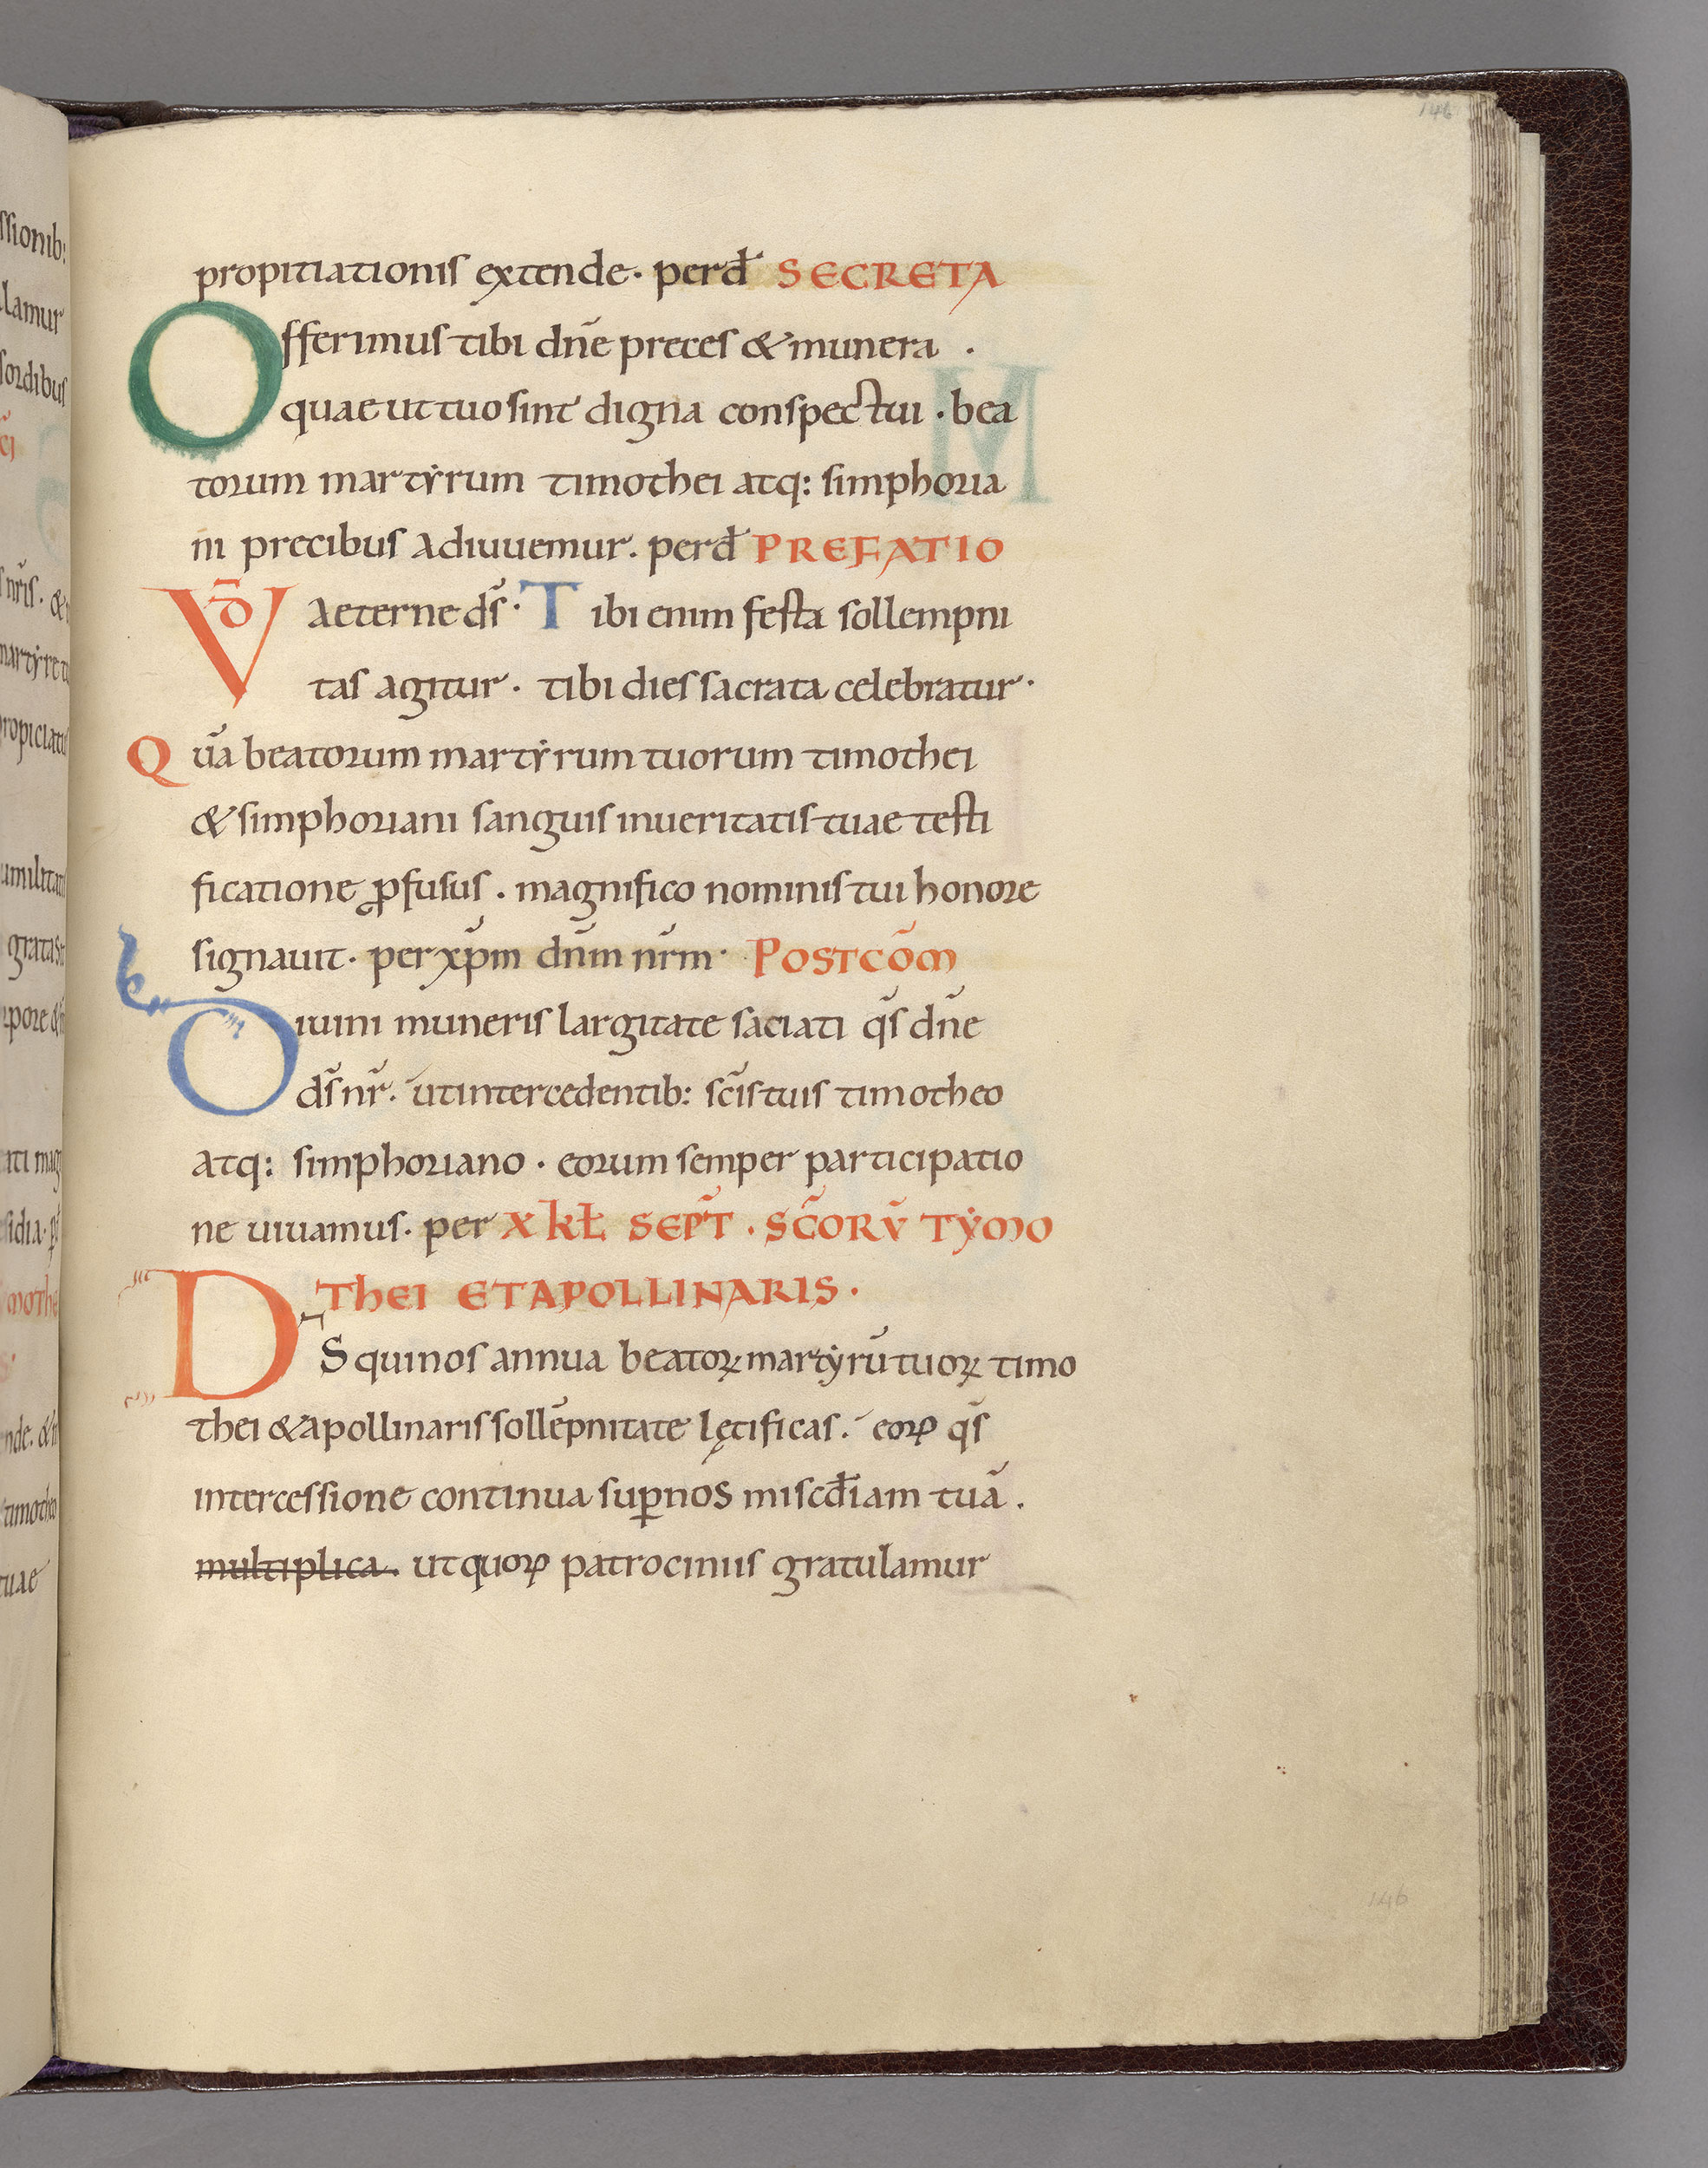 146
propitiationis extende. perd̄ SECRETA
Offerimus tibi dn̄e preces & munera .
quae ut tuo sint digna conspectui . bea
torum martẏrum timothei atq: simphoria
ni precibus adiuuemur. perd̄ PREFATIO
VD̄ aeterne ds̄ . Tibi enim festa sollempni
tas agitur . tibi dies sacrata celebratur .
Qūa beatorum martẏrum tuorum timothei
& simphoriani sanguis in ueritatis tuae testi
ficatione ꝓfusus . magnifico nominis tui honore
signauit . per xp̄m dn̄m nr̄m . POSTCOM̄
Diuini muneris largitate saciati qs̄ dn̄e
ds̄ nr̄. ut intercedentib: sc̄is tuis timotheo
atq: simphoriano . eorum semper participatio
ne uiuamus . per X kł SEPT̄ . SC̄ORV̄ TẎMO
THEI ET APOLLINARIS .
DS qui nos annua beatoꝝ martẏrū tuoꝝ timo
thei & apollinaris sollēpnitate lętificas . eoꝝ qs̄
intercessione continua suꝑ nos miscd̄iam tuā .
multiplica . ut quoꝝ patrociniis gratulamur
146